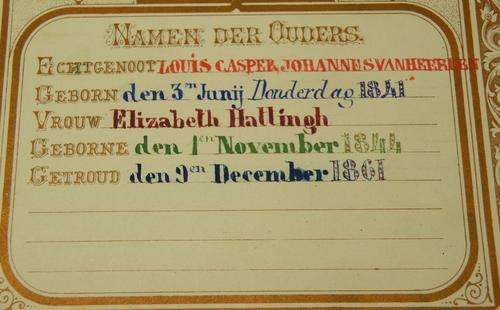 NAMEN DER OUDERS.
ECHTGENOOT LOUIS CASPER JOHANNUS VAN HEERDEN
GEBORN den 3en Junij Donderdag 1841
VROUW Elizabeth Hattingh
GEBORNE den 1en November 1844
GETROUD den 9en December 1861